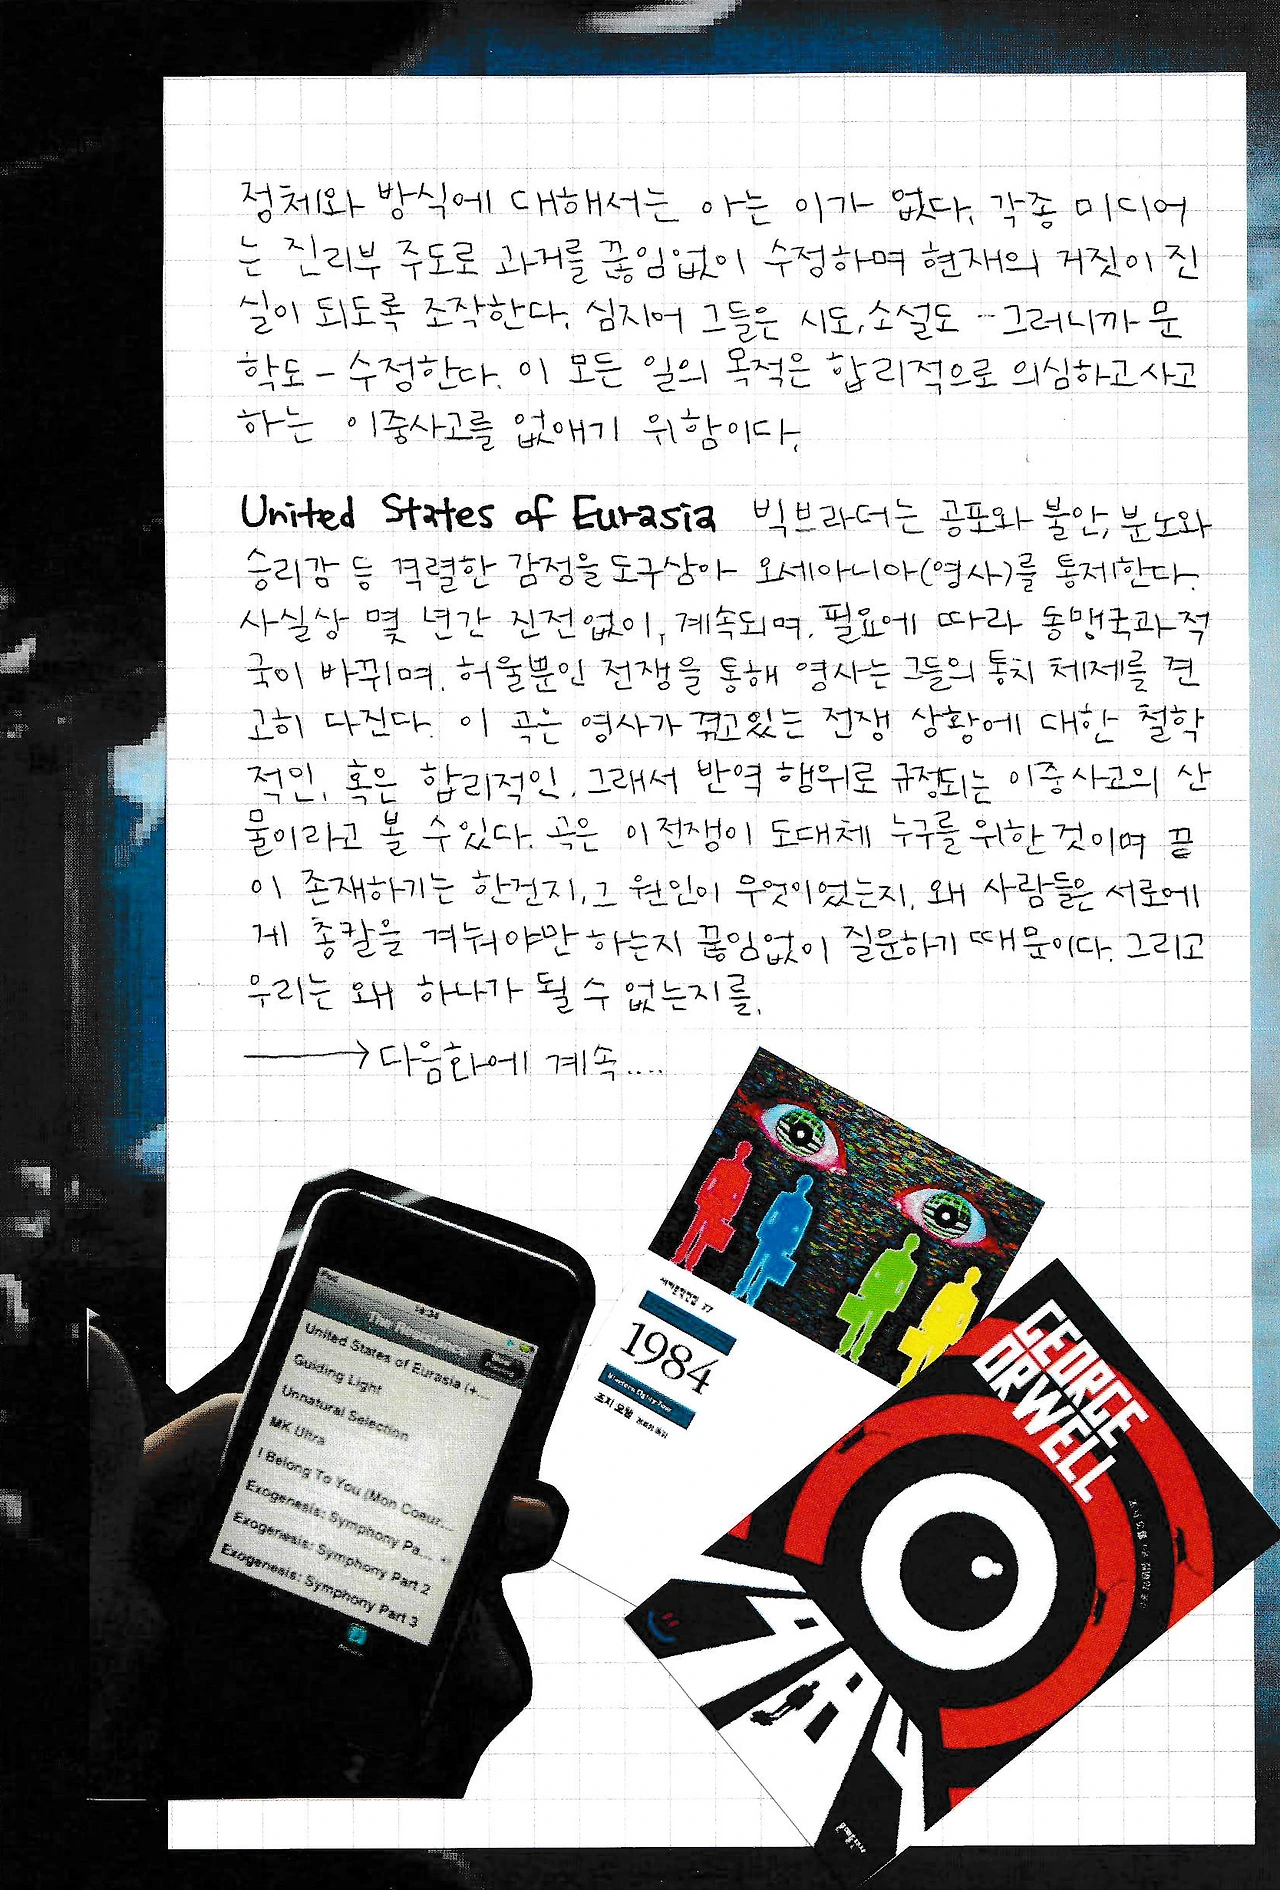 정체와 방식에 대해서는 아는 이가 없다. 각종 미디어
는 진리부 주도로 과거를 끊임없이 수정하며 현재의 거짓이 진
실이 되도록 조작한다. 심지어 그들은 시도, 소설도 - 그러니까 문
학도 - 수정한다. 이 모든 일의 목적은 합리적으로 의심하고 사고
하는 이중사고를 없애기 위함이다.
United States of Eurasia 빅브라더는 공포와 불안, 분노와
승리감 등 격렬한 감정을 도구삼아 오세아니아(영사)를 통제한다.
사실상 몇 년간 진전없이, 계속되며, 필요에 따라 동맹국과 적
국이 바뀌며, 허울뿐인 전쟁을 통해 영사는 그들의 통치 체제를 견
고히 다진다. 이 곡은 영사가 겪고있는 전쟁 상황에 대한 철학
적인, 혹은 합리적인, 그래서 반역 행위로 규정되는 이중사고의 산
물이라고 볼 수 있다. 곡은 이 전쟁이 도대체 누구를 위한 것이며 끝
이 존재하기는 한건지, 그 원인이 무엇이었는지, 왜 사람들은 서로에
게 총칼을 겨눠야만 하는지 끊임없이 질문하기 때문이다. 그리고
우리는 왜 하나가 될 수 없는지를.
→ 다음화에 계속....
United States of Eurasia (+...
Guiding Light
Unnatural Selection
MK Ultra
I Belong To You (Mon Coeur...
Exogenesis: Symphony Pa...
Exogenesis: Symphony Part 2
Exogenesis: Symphony Part 3
세계문학전집 77
1984
Nineteen Eighty-Four
조지 오웰
GEORGE
ORWELL
1984